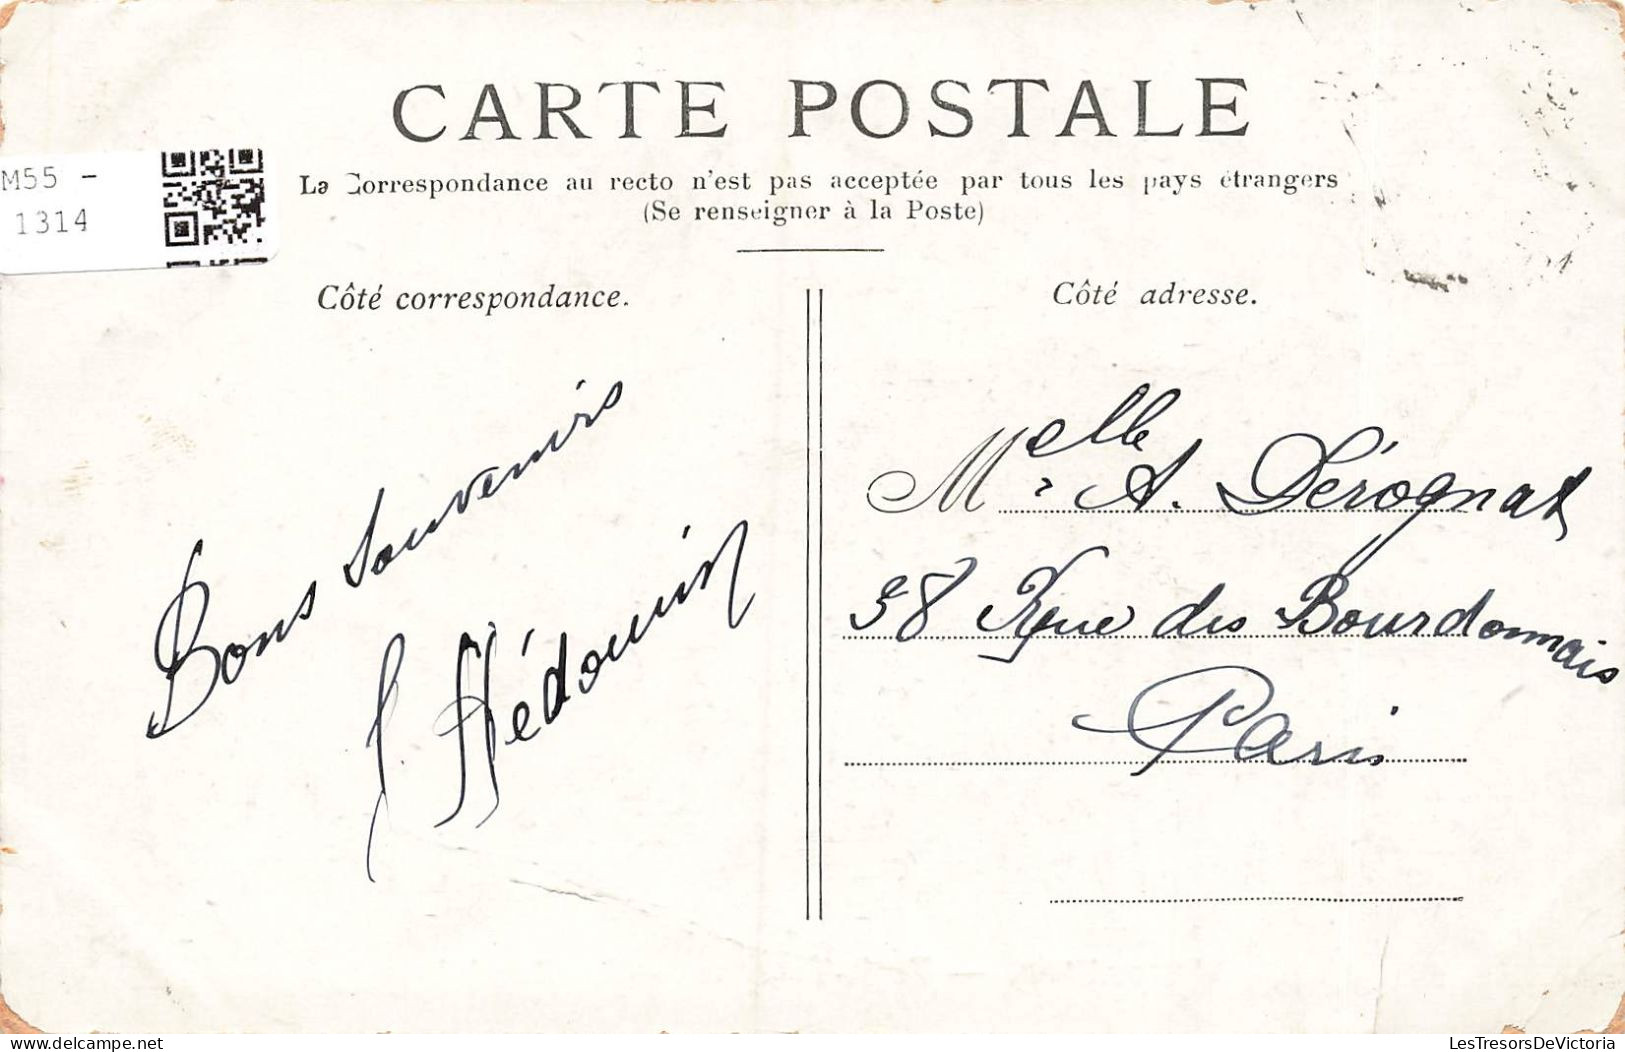 CARTE POSTALE
La Correspondance au recto n'est pas acceptée par tous les pays étrangers
(Se renseigner à la Poste)
M55 -
1314
Côté correspondance.
Bons souvenirs
Hédouin
Côté adresse.
Melle A. Dérognat
58 Rue des Bourdonnais
Paris
delcampe.net
LesTresorsDeVictoria